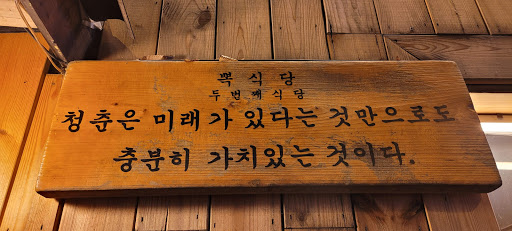 뽁식당
두번째식당
청춘은 미래가 있다는 것만으로도
충분히 가치있는 것이다.